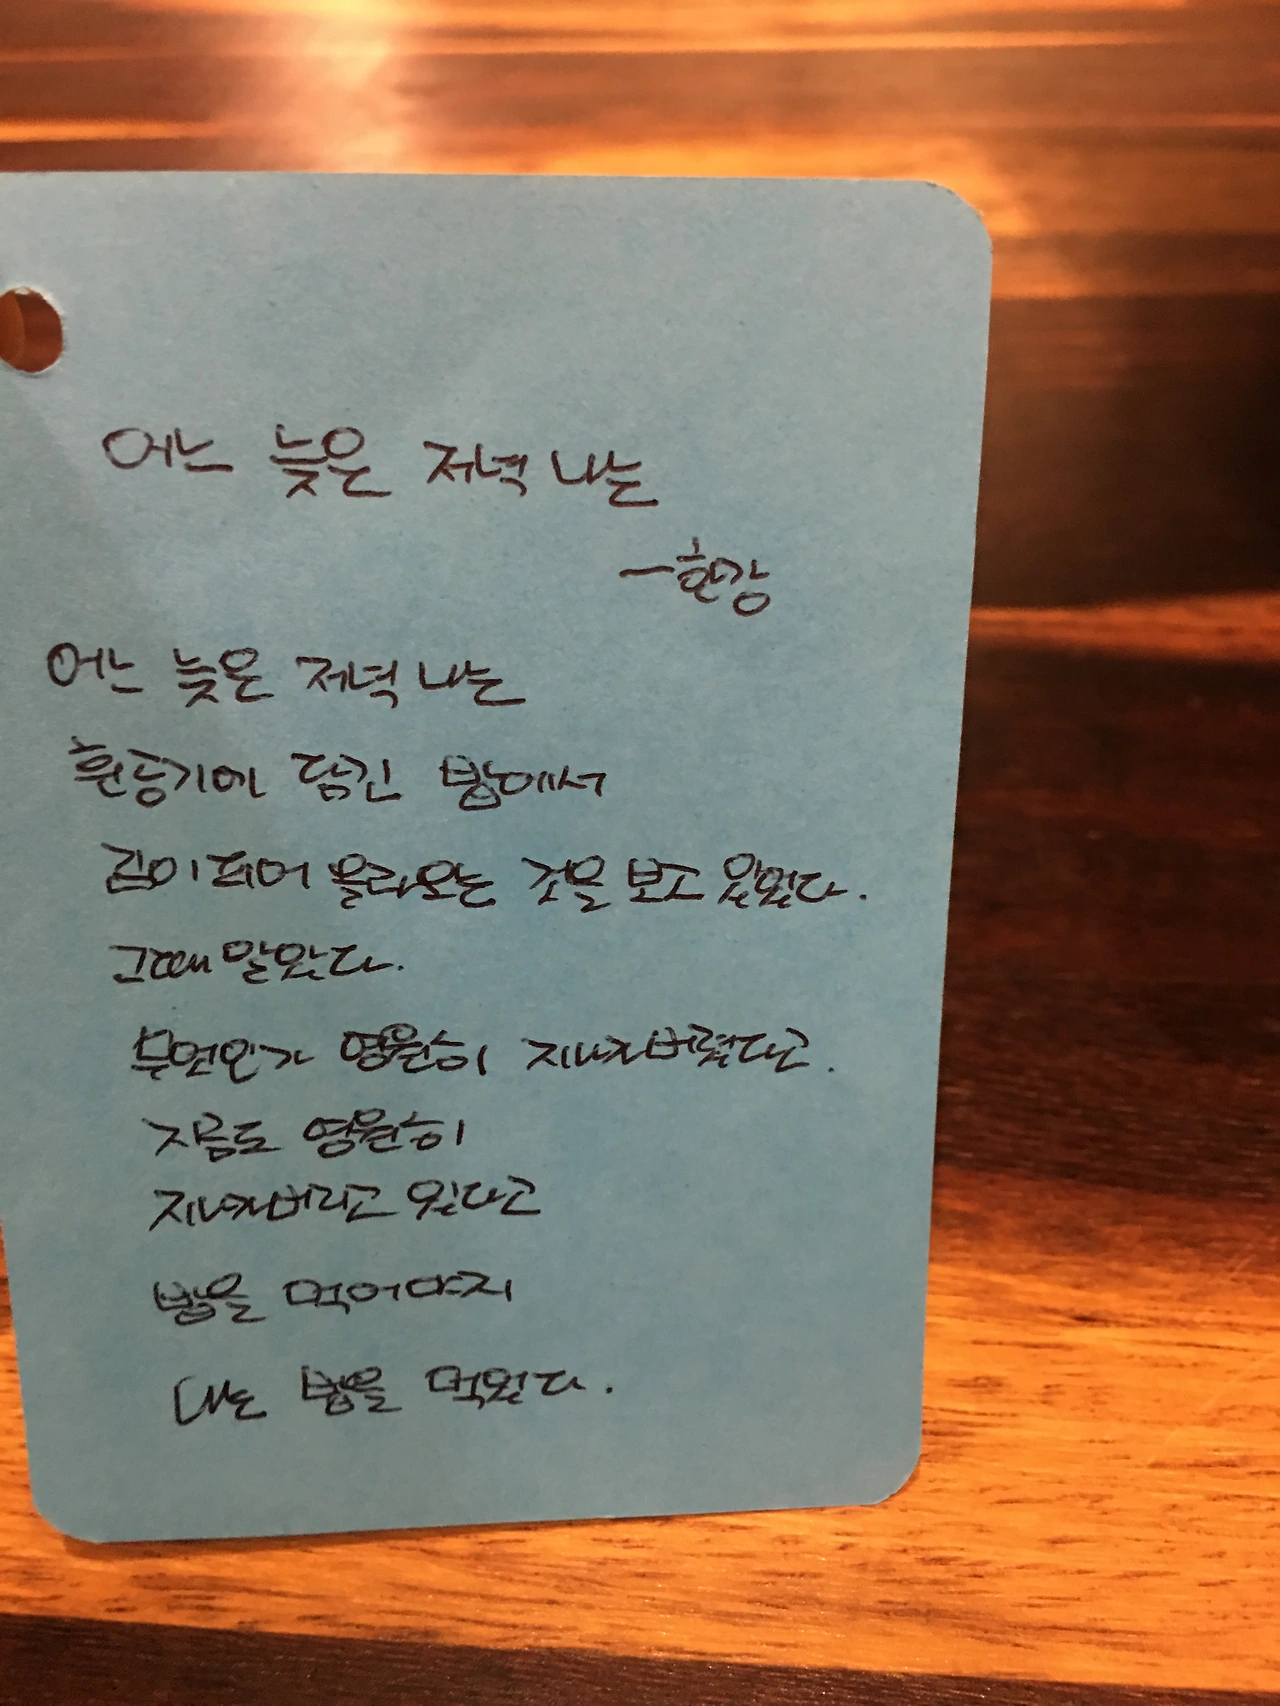 어느 늦은 저녁 나는
-한강
어느 늦은 저녁 나는
흰공기에 담긴 밥에서
김이 피어 올라오는 것을 보고 있었다.
그때 알았다.
무엇인가 영원히 지나가버렸다고.
지금도 영원히
지나가버리고 있다고
밥을 먹어야지
나는 밥을 먹었다.